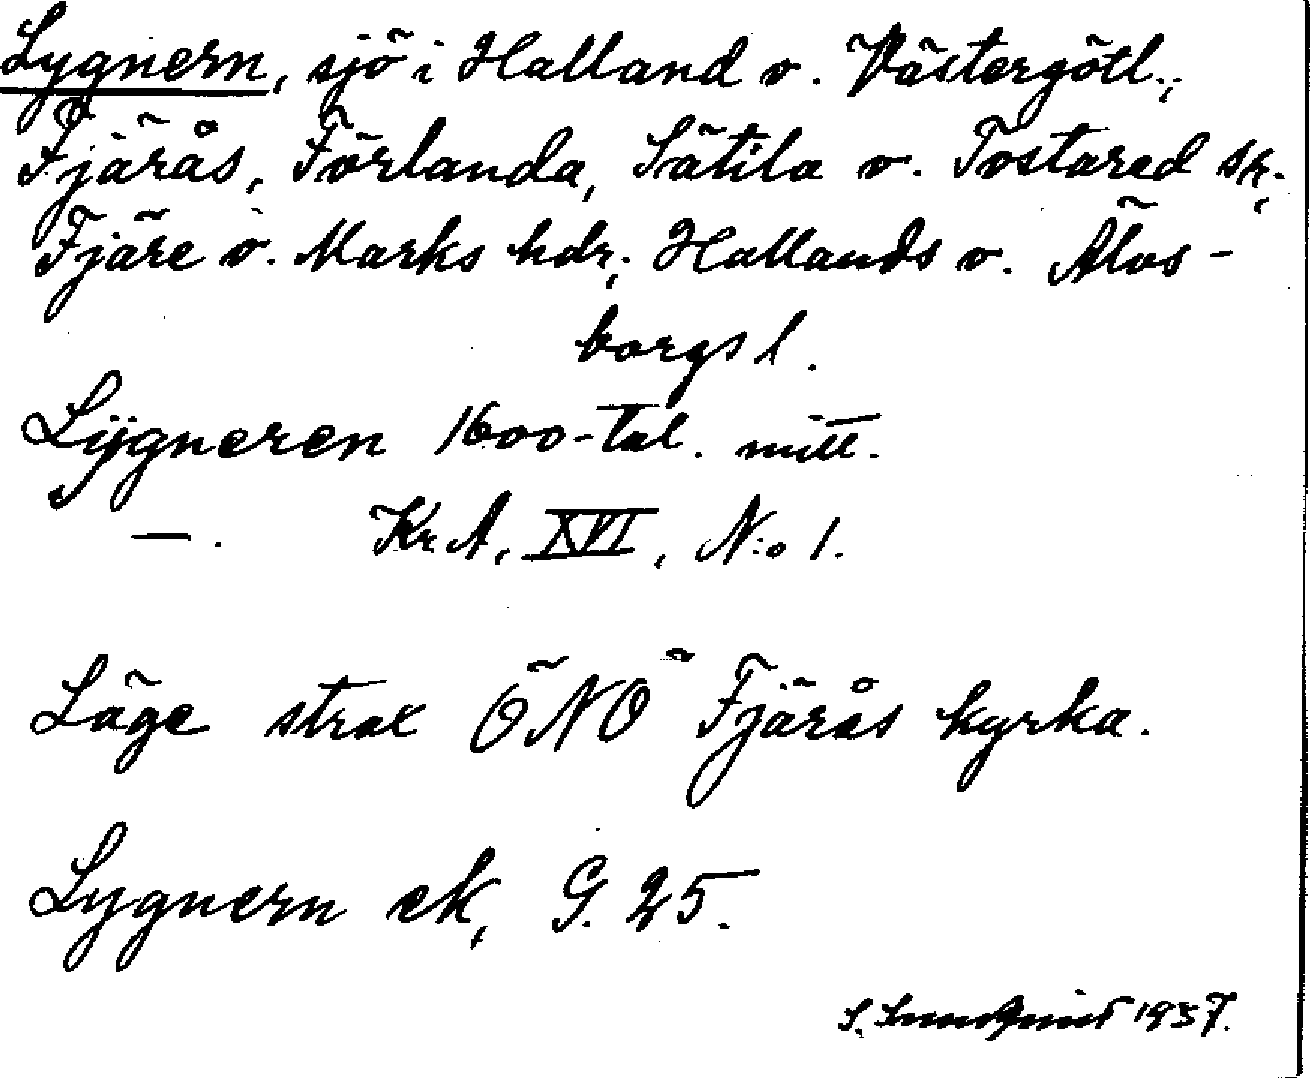 Lygnern, sjö i Halland o. Västergötl.,
Fjärås, Förlanda, Sätila o. Tostared sk.,
Fjäre o. Marks hdr, Hallands o. Älvs-
borgs l.
Lÿgneren 1600-tal. mitt.
—. KrA, XVI, N:o 1.
Läge strax ÖNO Fjärås kyrka.
Lygnern ek, G. 25.
S. 1937.